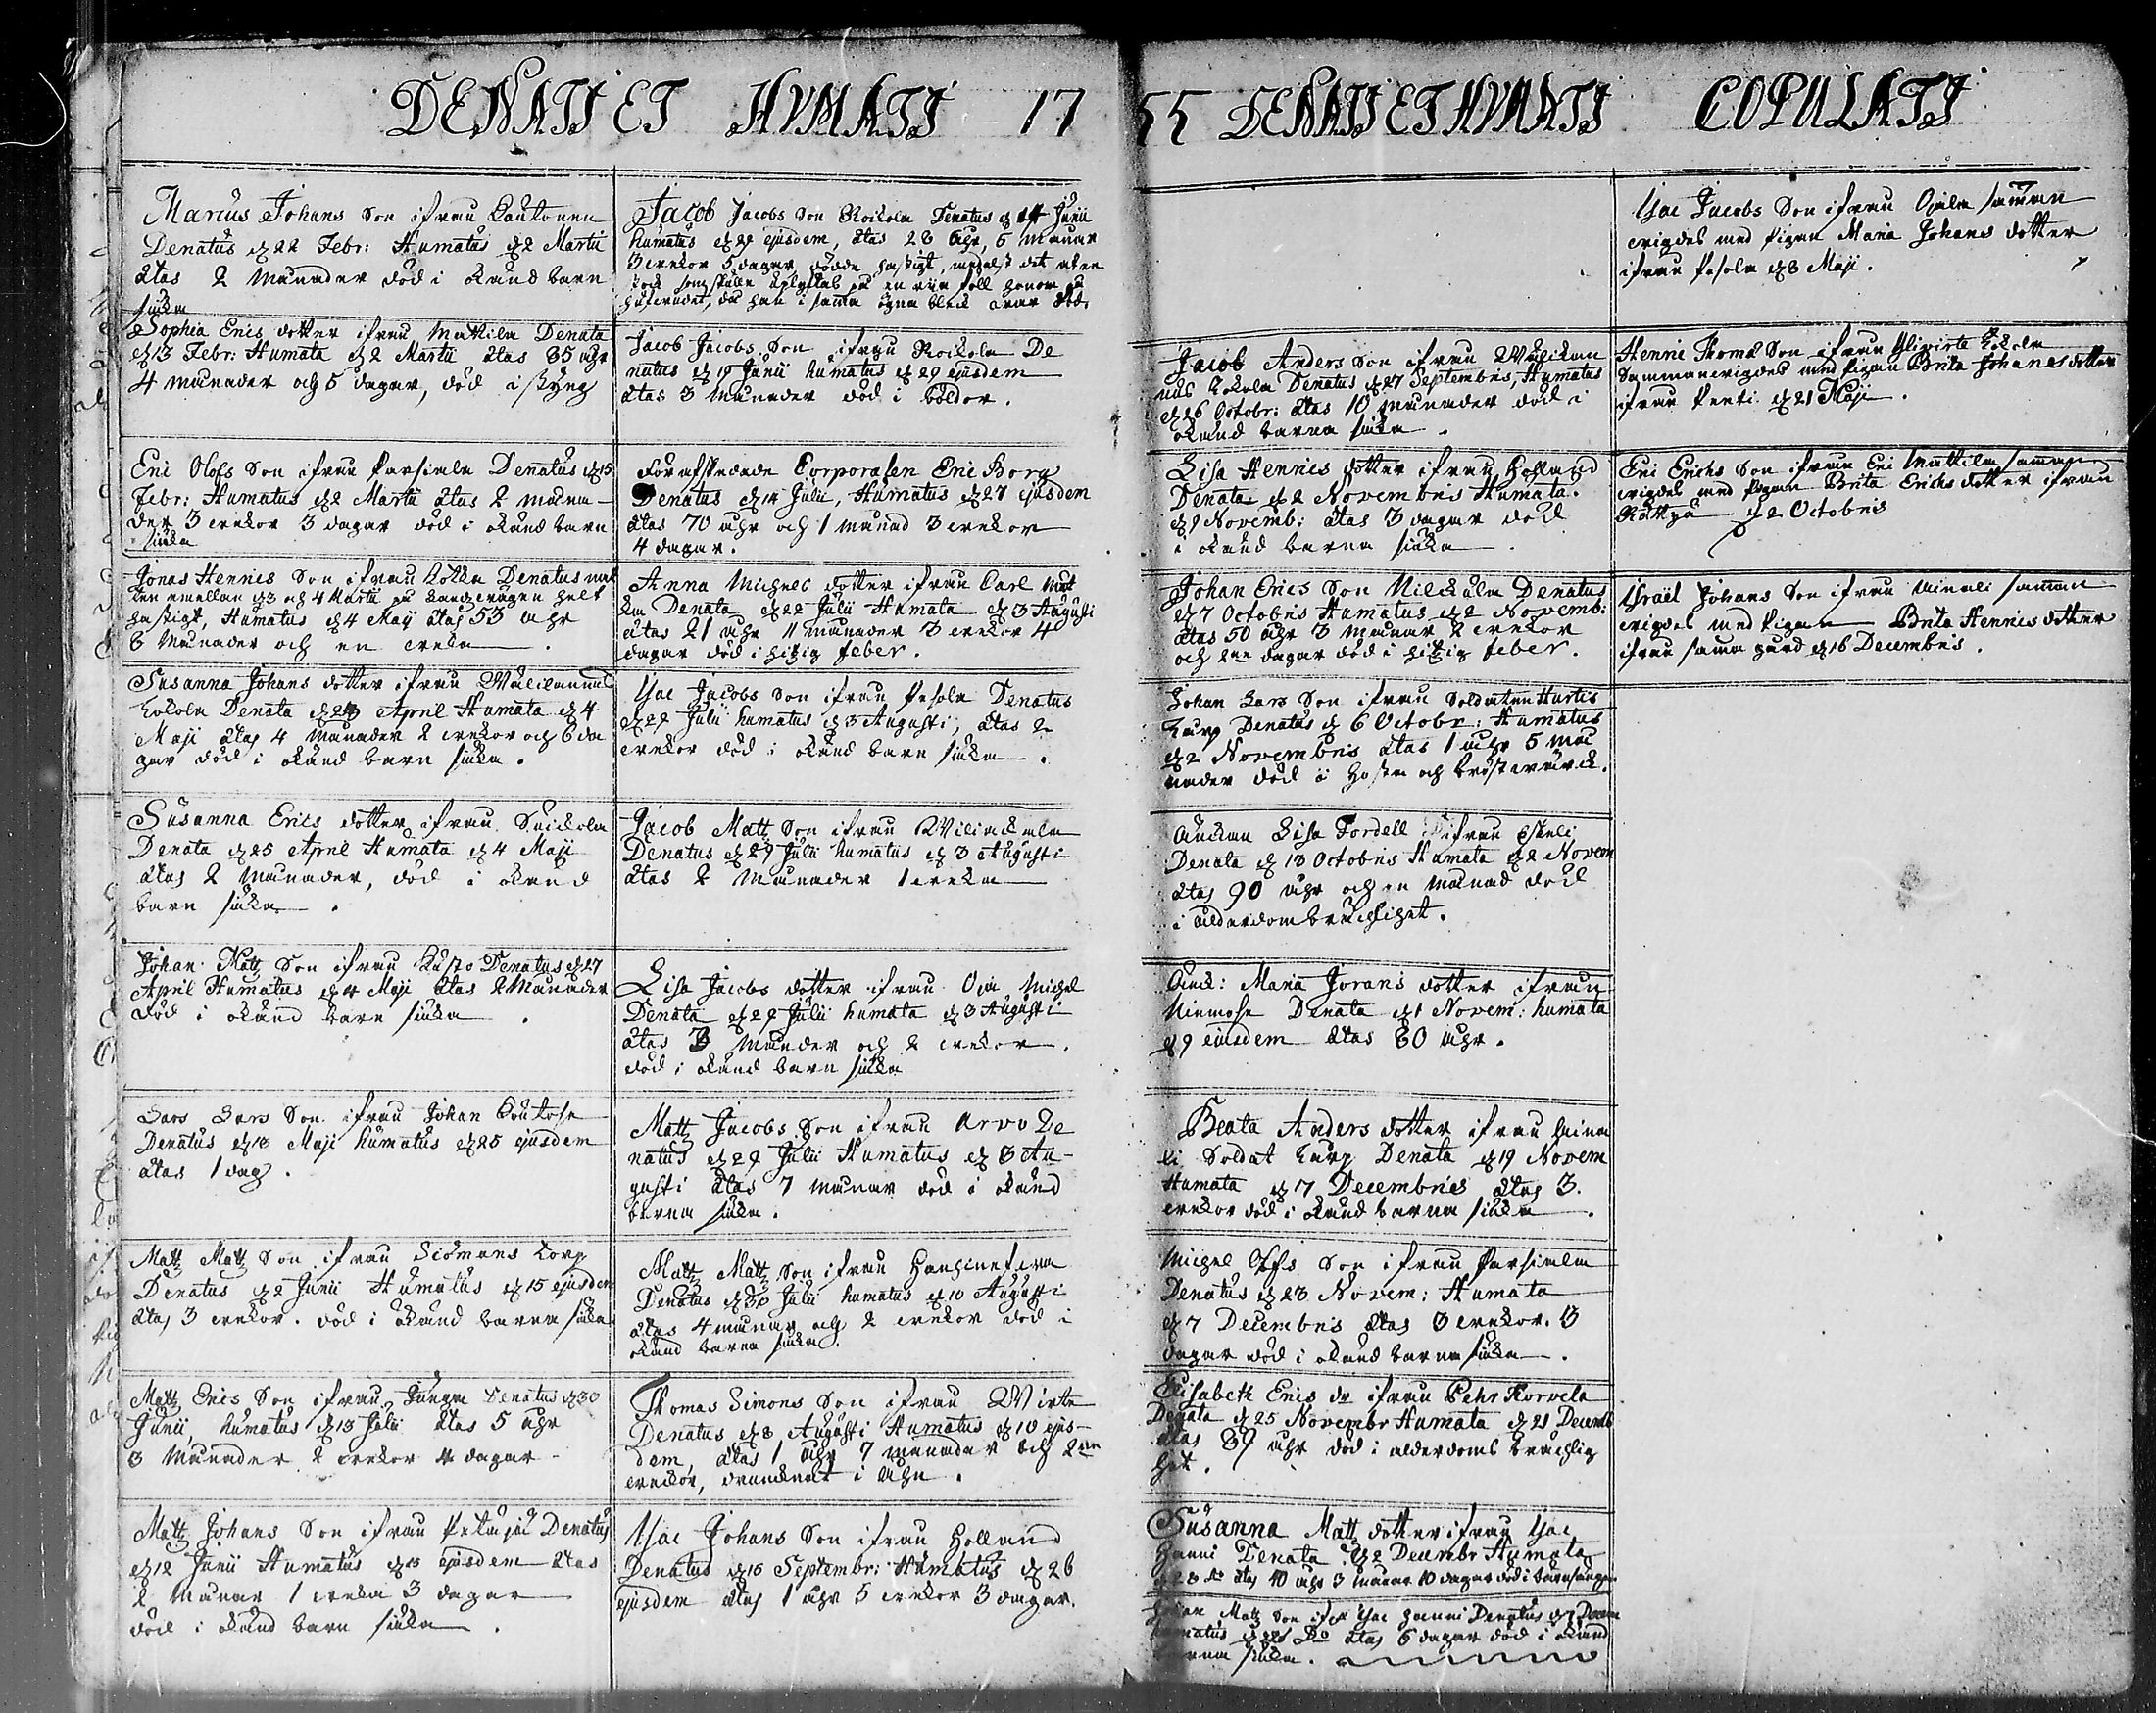 DENATI ET HUMATI 17
Marcus Johans Son ifrån Lautonen
Denatus d 22 Febr: Humatus d 2 Martii
ætas 2 Månader död i okänd barn
siuka
Sophia Erics dotter ifrån Mattila Denata
d 13 Febr: Humata d 2 Martii ætas 35 åhr
4 månader och 5 dagar, död i styng
Eric Olofs Son ifrån Parsiala Denatus d 15
Febr: Humatus d 2 Martii ætas 2 måna-
der 3 wekor 3 dagar död i okänd barn
siuka
Jonas Hennics Son ifrån Denatus nat
ten emellan d 3 och 4 Martii på landzwägen helt
hastigt, Humatus d 4 Maij ætas 53 åhr
6 Månader och en weka.
Susanna Johans dotter ifrån
kokola Denata d 23 April Humata d 4
Maji ætas 4 månader 2 wekor och 6 da
gar död i okänd barn siuka.
Susanna Erics dotter ifrån
Denata d 25 April Humata d 4 Maji
ætas 2 Månader, död i okänd
barn siuka.
Johan Matz Son ifrån Kusto Denatus d 27
April Humatus d 4 Maji ætas 2 Månader
död i okänd barn siuka.
Lars Lars Son ifrån Johan
Denatus d 18 Maji humatus d 25 ejusdem
ætas 1 dag.
Matz Matz Son ifrån Sidmans torp
Denatus d 2 Junii Humatus d 15 ejusdem
ætas 3 wekor. död i okänd barna siuka
Matz Erics Son ifrån Denatus d 30
Junii, humatus d 13 Julii ætas 5 åhr
3 Månader 2 wekor 4 dagar
Matz Johans Son ifrån Denatus
d 12 Junii Humatus d 15 ejusdem ætas
2 månar 1 weka 3 dagar
död i okänd barn siuka.
Jacob Jacobs Son Roikola Denatus d 14 Junii
humatus d 29 ejusdem, ætas 28 åhr, 6 månar
3 wekor 5 dagar, dödde hastigt, medelst det at en
stock som skulle uplyftas på en ria föll honom på
hufwudet, då han i samma ögna bleck war död.
Jacob Jacobs Son ifrån Roikola De
natus d 19 Junii humatus d 29 ejusdem
ætas 3 månader död i bôldor.
Förafskedade Corporalen Eric Borg
Denatus d 14 Julii, Humatus d 27 ejusdem
ætas 70 åhr och 1 månad 3 wekor
4 dagar.
Anna Michels dotter ifrån Carl Mat
tila Denata d 22 Julii Humata d 3 Augusti
ætas 21 åhr 11 månader 3 wekor 4
dagar död i hitzig feber.
Isac Jacobs Son ifrån Pesola Denatus
d 29 Julii humatus d 3 Augusti, ætas 2
wekor död i okänd barn siuka.
Jacob Matz Son ifrån
Denatus d 29 Julii humatus d 3 Augusti
ætas 2 Månader 1 weka
Lisa Jacobs dotter ifrån Oja Michel
Denata d 29 Julii humata d 3 Augusti
ætas 3 Månder och 2 wekor.
död i okänd barn siuka
Matz Jacobs Son ifrån Arvo De
natus d 29 Julii Humatus d 3 Au-
gusti ætas 7 månar död i okänd
barna siuka.
Matz Matz Son ifrån
Denatus d 30 Julii humatus d 10 Augusti
ætas 4 månar och 2 wekor död i
okänd barna siuka.
Thomas Simons Son ifrån Wirta
Denatus d 8 Augusti Humatus d 10 ejus-
dem, ætas 1 åhr 7 månader och 2ne
wekor, drunknat i åhn.
Isac Johans Son ifrån Holland
Denatus d 15 Septembr: Humatus d 26
ejusdem ætas 1 åhr 5 wekor 3 dagar.
55 DENATI ET HUMATI
Jacob Anders Son ifrån
kokola Denatus d 27 Septembris, Humatus
d 26 Octobr: ætas 10 månader död i
okänd barna siuka.
Lisa Hennics dotter ifrån Holland
Denata d 2 Novembris Humata
d 9 Novemb: ætas 3 dagar död
i okänd barna siuka.
Johan Erics Son Denatus
d 7 Octobris Humatus d 2 Novemb:
ætas 50 åhr 3 månar 2 wekor
och 2ne dagar död i hitzig feber.
Johan Lars Son ifrån Soldaten Hurtis
torp Denatus d 6 Octobr: Humatus
d 2 Novembris ætas 1 åhr 5 må
nader död i hosta och bröstwärck.
Änckan Lisa Fordell ifrån
Denata d 13 Octobris Humata d 2 Novem
ætas 90 åhr och en månad död
i ålderdom bräcklighet.
Änck: Maria Jörans dotter ifrån
Niemose Denata d 1 Novem: humata
d 9 eiusdem ætas 80 åhr.
Beata Anders dotter ifrån
Soldat torp Denata d 19 Novem
Humata d 7 Decembris ætas 3.
wekor död i okänd barna siuka.
Michel Olofs Son ifrån Parsiala
Denatus d 23 Novem: Humata
d 7 Decembris ætas 3 wekor. 3
dagar död i okänd barna siuka.
Elisabeth Erics dr ifrån Pehr Korvela
Denata d 25 Novembr Humata d 21 Decemb
ætas 89 åhr död i ålderdoms bräcklig
het.
Susanna Matz dotter ifrån Isac
Hanni Denata d 2 Decembr Humata
d 28 do ætas 40 åhr 3 månar 10 dagar död i barnsäng
Johan Matz Son ifrån Isac Hanni Denatus d 7 Decem
humatus Do ætas 6 dagar död i okänd
barna siuka.
COPULATI
Isac Jacobs Son ifrån Ojala samman
wigdes med pigan Maria Johans dotter
ifrån Pesola d 8 Maji.
Henric Thomæ Son ifrån kokola
Sammanwigdes med pigan Brita Johans dotter
ifrån Pentti d 21 Maji.
Eric Erichs Son ifrån Eric Mattila samman
wigdes med pigan Brita Erichs dotter ifrån
d 2 Octobris
Israël Johans Son ifrån samman
wigdes med pigan Brita Hennics dotter
ifrån samma gård d 16 Decembris.